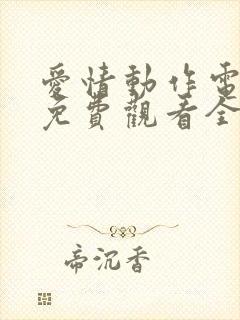 愛情動作電
免費觀看全
帝沉香